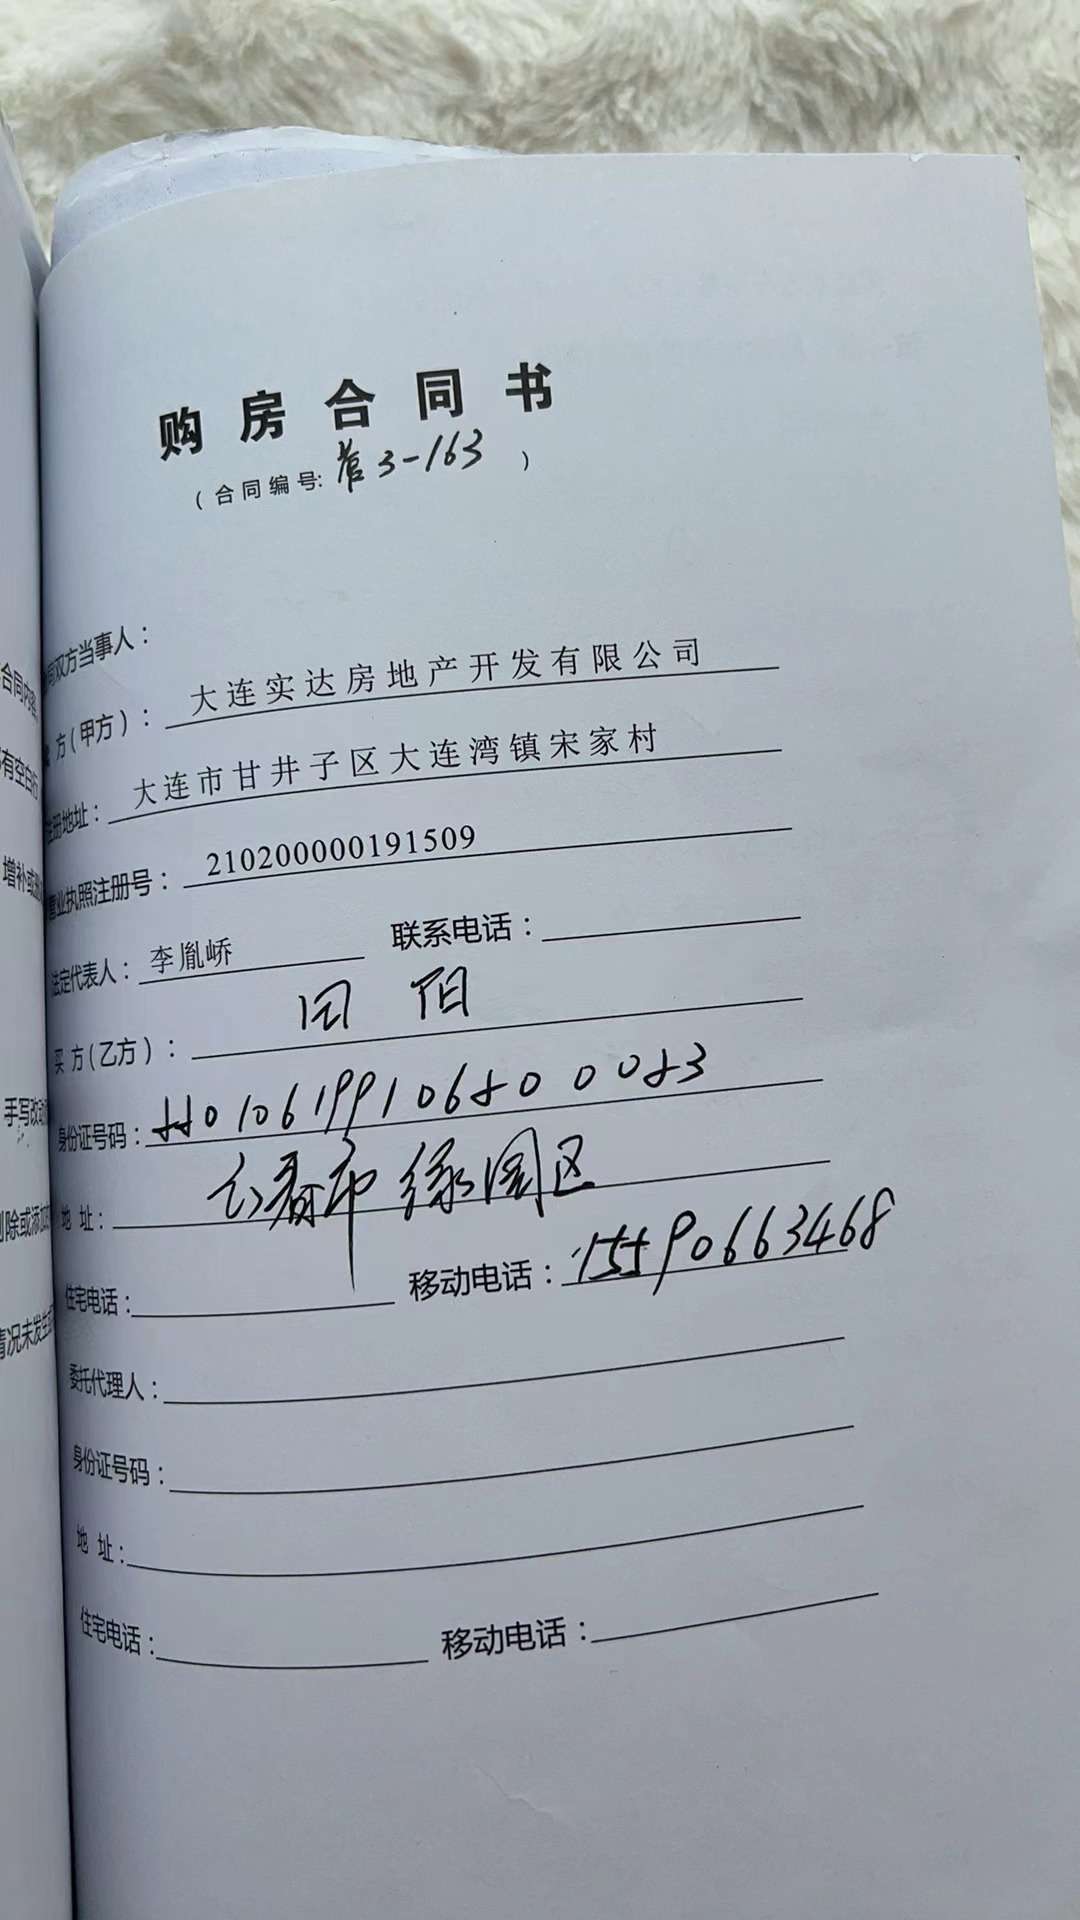 购房合同书
(合同编号:营3-163)
合同内容
同双方当事人:
方(甲方): 大连实达房地产开发有限公司
有空白
注册地址: 大连市甘井子区大连湾镇宋家村
增补或
营业执照注册号: 210200000191509
法定代表人: 李胤峤 联系电话:
买方(乙方): 田阳
手写改
身份证号码:
删除或添加
地址: 长春市绿园区
住宅电话: 移动电话: 15590663468
情况未发生
委托代理人:
身份证号码:
地址:
住宅电话: 移动电话: